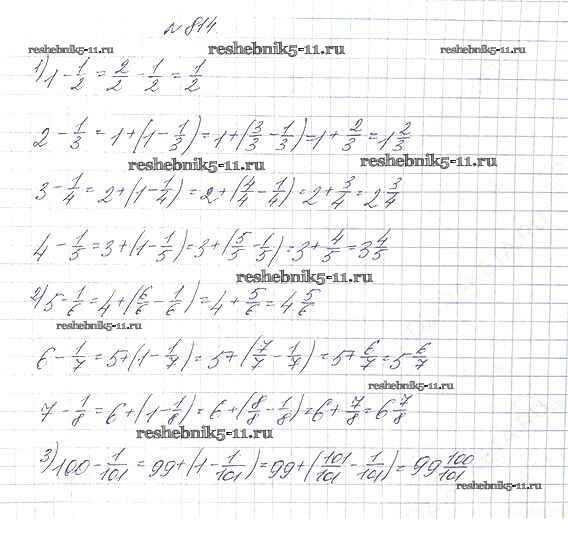 №814
reshebnik5-11.ru reshebnik5-11.ru reshebnik5-11.ru
1) 1 - 1/2 = 2/2 - 1/2 = 1/2
2 - 1/3 = 1 + (1 - 1/3) = 1 + (3/3 - 1/3) = 1 + 2/3 = 1 2/3
reshebnik5-11.ru reshebnik5-11.ru
3 - 1/4 = 2 + (1 - 1/4) = 2 + (4/4 - 1/4) = 2 + 3/4 = 2 3/4
4 - 1/5 = 3 + (1 - 1/5) = 3 + (5/5 - 1/5) = 3 + 4/5 = 3 4/5
reshebnik5-11.ru
2) 5 - 1/6 = 4 + (6/6 - 1/6) = 4 + 5/6 = 4 5/6
reshebnik5-11.ru
6 - 1/7 = 5 + (1 - 1/7) = 5 + (7/7 - 1/7) = 5 + 6/7 = 5 6/7
reshebnik5-11.ru
7 - 1/8 = 6 + (1 - 1/8) = 6 + (8/8 - 1/8) = 6 + 7/8 = 6 7/8
reshebnik5-11.ru
3) 100 - 1/101 = 99 + (1 - 1/101) = 99 + (101/101 - 1/101) = 99 100/101
reshebnik5-11.ru